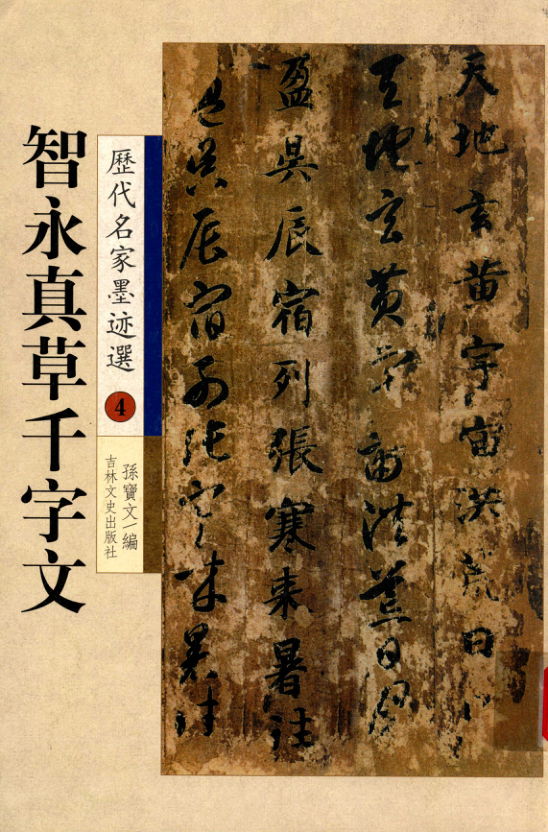 智永真草千字文
歷代名家墨迹選
4
孫寶文/編
吉林文史出版社
天地玄黄宇宙洪荒日月
天地玄黄宇宙洪荒日月
盈昃辰宿列張寒来暑往
盈昃辰宿列張寒来暑往